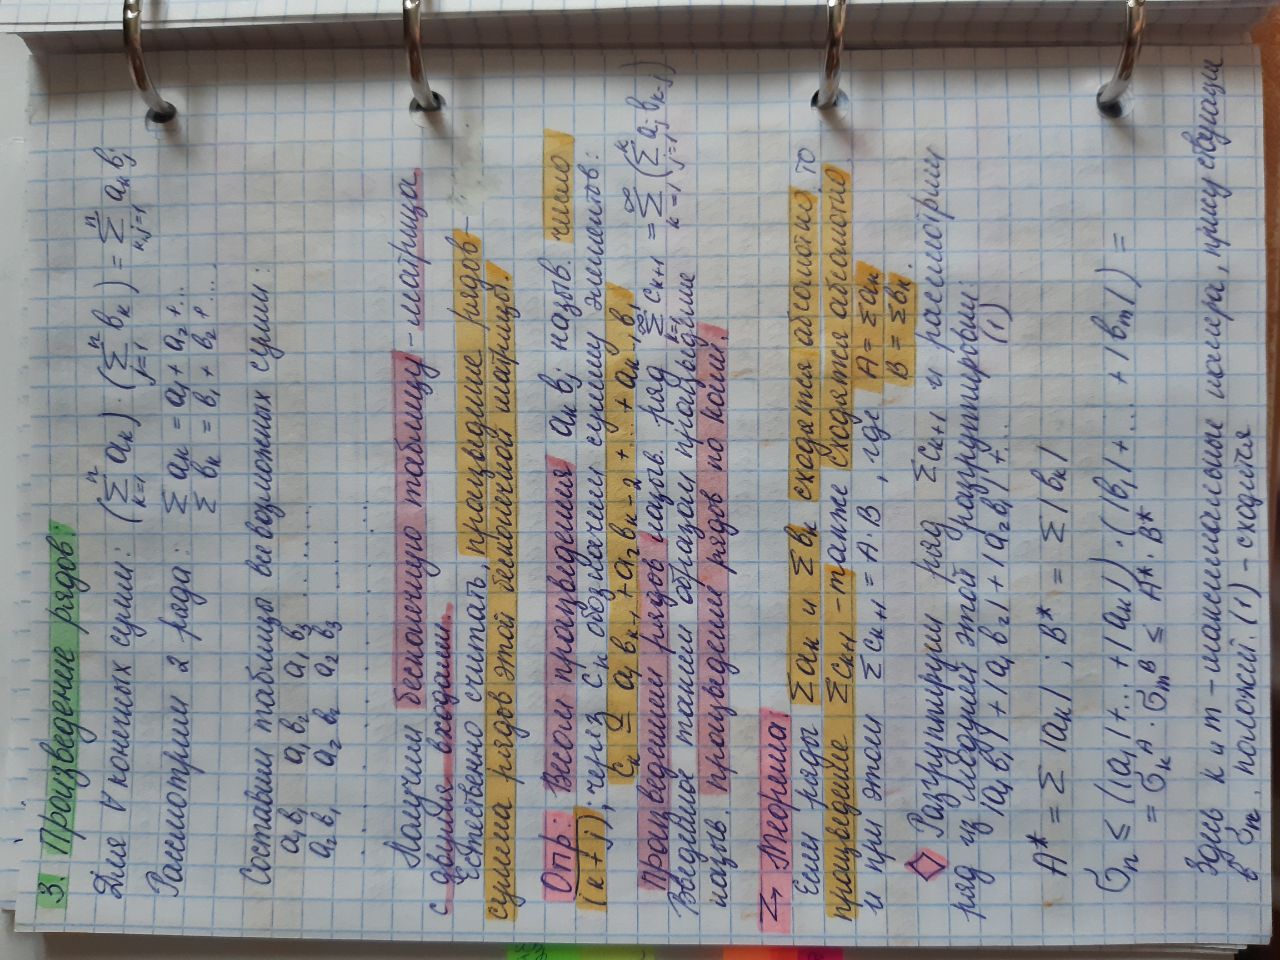 3. Произведение рядов:
Для ∀ конечных сумм: (∑_{k=1}^{n} a_k) · (∑_{j=1}^{n} b_k) = ∑_{k,j=1}^{n} a_k b_j
Рассмотрим 2 ряда: ∑ a_k = a_1 + a_2 + ...
∑ b_k = b_1 + b_2 + ...
Составим таблицу всевозможных сумм:
a_1 b_1 a_1 b_2 a_1 b_3 .....
a_2 b_1 a_2 b_2 a_2 b_3 .....
Получим бесконечную таблицу - матрица
с двумя входами.
Естественно считать, произведение рядов -
сумма рядов этой бесконечной матрицы.
Опр: Весом произведения a_k b_j назыв. число
(k+j), через C_k обозначим сумму элементов:
C_k = a_1 b_{k-1} + a_2 b_{k-2} + ... + a_{k-1} b_1
Произведением рядов назыв. ряд ∑_{k=1}^{∞} C_{k+1} = ∑_{k=1}^{∞} (∑_{j=1}^{k} a_j b_{k-j})
Введённое таким образом произведение
назыв. произведение рядов по Коши.
Теорема
Если ряды ∑a_k и ∑b_k сходятся абсолютно, то
произведение ∑C_{k+1} - также сходятся абсолютно
и при этом ∑C_{k+1} = A·B, где A = ∑a_k
B = ∑b_k.
◇ Разгруппируем ряд ∑C_{k+1} и рассмотрим
ряд из модулей этой разгруппировки:
|a_1 b_1| + |a_1 b_2| + |a_2 b_1| + ... (1)
A* = ∑|a_k|; B* = ∑|b_k|
σ_n ≤ (|a_1| + ... + |a_k|) · (|b_1| + ... + |b_m|) =
= σ_k^A · σ_m^B ≤ A* · B*
Здесь k и m - максимальные номера, присутствующие
в σ_n, положей. (1) - сходится